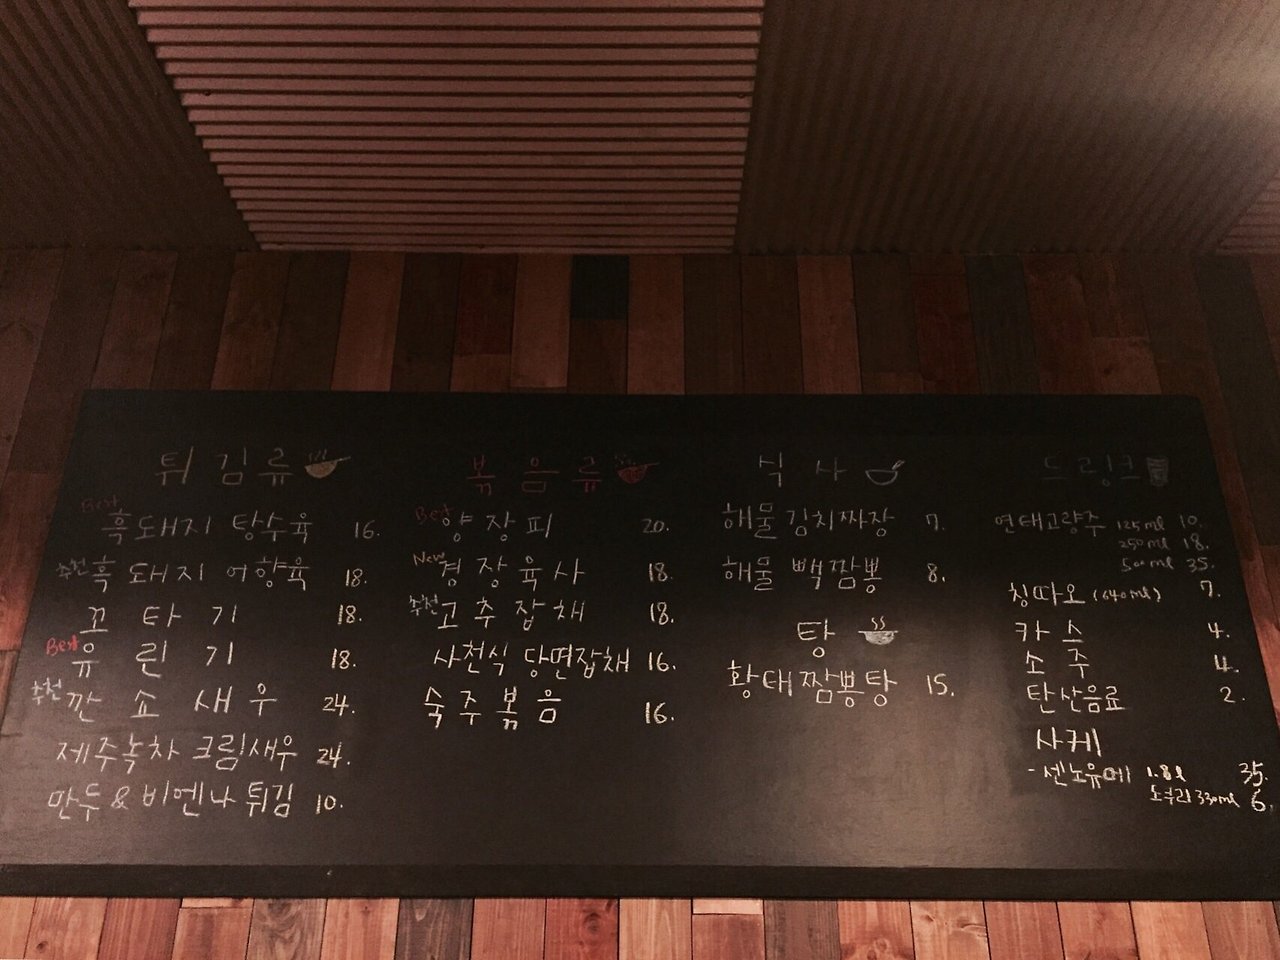 튀김류
Best 흑돼지 탕수육 16.
추천 흑돼지 어향육 18.
꼬타기 18.
Best 유린기 18.
추천 깐쇼새우 24.
제주녹차 크림새우 24.
만두 & 비엔나 튀김 10.
볶음류
Best 양장피 20.
New 경장육사 18.
추천 고추잡채 18.
사천식 당면잡채 16.
숙주볶음 16.
식사
해물김치짜장 7.
해물 빽짬뽕 8.
탕
황태짬뽕탕 15.
드링크
연태고량주 125ml 10.
250ml 18.
500ml 35.
칭따오 (640ml) 7.
카스 4.
소주 4.
탄산음료 2.
사케
- 센노유메 1.8l 35.
도쿠리 330ml 6.